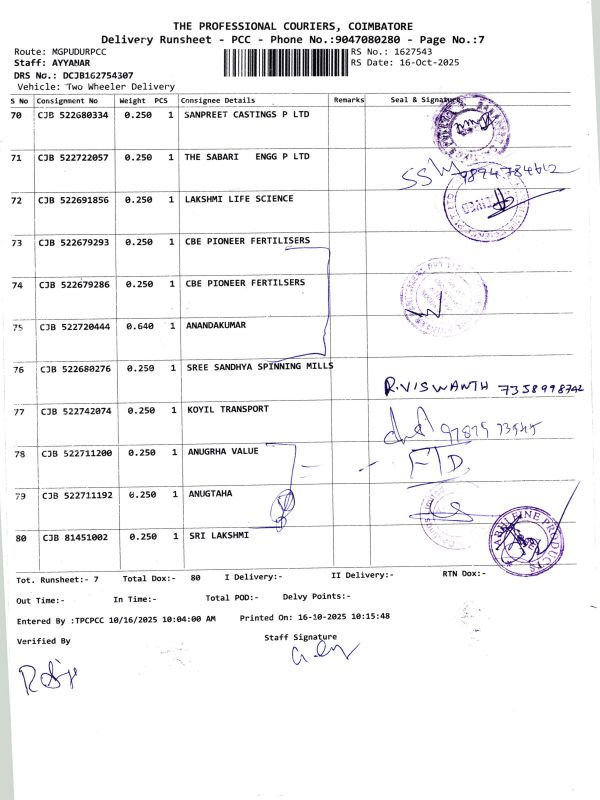 THE PROFESSIONAL COURIERS, COIMBATORE
Delivery Runsheet - PCC - Phone No.:9047080280 - Page No.:7
Route: MGPUDURPCC RS No.: 1627543
Staff: AYYANAR RS Date: 16-Oct-2025
DRS No.: DCJB162754307
Vehicle: Two Wheeler Delivery
S No Consignment No Weight PCS Consignee Details Remarks Seal & Signature
70 CJB 522680334 0.250 1 SANPREET CASTINGS P LTD
71 CJB 522722057 0.250 1 THE SABARI ENGG P LTD
72 CJB 522691856 0.250 1 LAKSHMI LIFE SCIENCE
73 CJB 522679293 0.250 1 CBE PIONEER FERTILISERS
74 CJB 522679286 0.250 1 CBE PIONEER FERTILSERS
75 CJB 522720444 0.640 1 ANANDAKUMAR
76 CJB 522680276 0.250 1 SREE SANDHYA SPINNING MILLS
R.VISWANTH 7358998742
77 CJB 522742074 0.250 1 KOYIL TRANSPORT
78 CJB 522711200 0.250 1 ANUGRHA VALUE
79 CJB 522711192 0.250 1 ANUGTAHA
80 CJB 81451002 0.250 1 SRI LAKSHMI
ABILEINE PRODUCTS
Tot. Runsheet:- 7 Total Dox:- 80 I Delivery:- II Delivery:- RTN Dox:-
Out Time:- In Time:- Total POD:- Delvy Points:-
Entered By :TPCPCC 10/16/2025 10:04:00 AM Printed On: 16-10-2025 10:15:48
Verified By Staff Signature